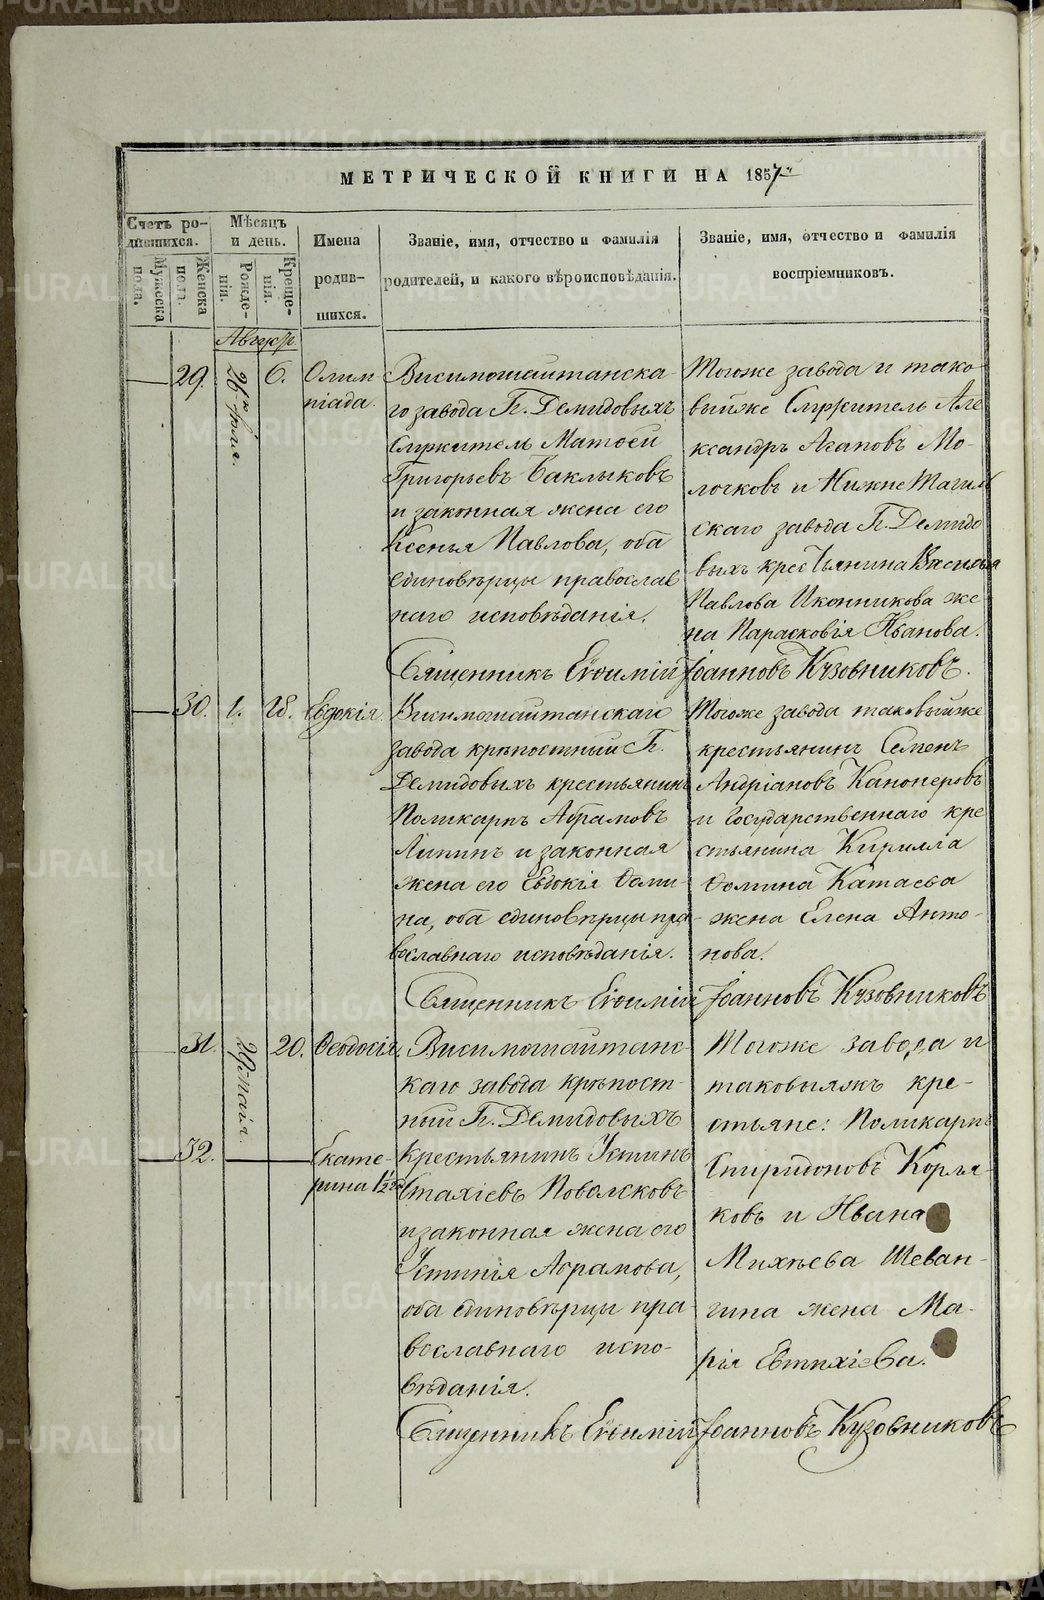 МЕТРИЧЕСКОЙ КНИГИ НА 1857
Счетъ ро-
дившихся.
Мѣсяцъ
и день.
Мужеска
пола.
Женска
пола.
Рожде-
нія.
Креще-
нія.
Имена
родив-
шихся.
Званіе, имя, отчество и фамилія
родителей, и какого вѣроисповѣданія.
Званіе, имя, отчество и фамилія
воспріемниковъ.
Августъ
29.
26го Іюля.
6.
Олим
піада.
Висимошайтанска-
го завода Гг. Демидовыхъ
Служитель Матѳей
Григорьевъ Баклыковъ
и законная жена его
Ксенья Павлова, оба
единовѣрцы православ
наго исповѣданія.
Тогоже завода и тако
выйже Служитель Але
ксандръ Агаповъ Мо-
лочковъ и НижнеТагиль
скаго завода Гг. Демидо
выхъ крестьянина Василья
Павлова Иконникова же-
на Парасковія Иванова.
Священникъ Евѳимій Іоанновъ Кузовниковъ.
30.
1.
18.
Евдокія.
Висимошайтанскаго
завода крѣпостный Гг.
Демидовыхъ крестьянинъ
Поликарпъ Абрамовъ
Липинъ и законная
жена его Евдокія Ѳоми-
на, оба единовѣрцы пра-
вославнаго исповѣданія.
Тогоже завода таковыйже
крестьянинъ Семенъ
Андріановъ Канонеровъ
и Государственнаго кре
стьянина Кирилла
Ѳомина Катаева
жена Елена Анто-
нова.
Священникъ Евѳимій Іоанновъ Кузовниковъ
31.
20.
Ѳеодосія,
32.
Екате-
рина
Висимошайтанс-
каго завода крѣпост-
ный Гг. Демидовыхъ
Крестьянинъ Устинъ
Стахіевъ
и законная жена его
Устинія Абрамова,
оба единовѣрцы пра-
вославнаго испо-
вѣданія.
Тогоже завода и
таковыяжъ кре-
стьяне: Поликарпъ
Спиридоновъ Коря-
ковъ и Ивана
Михѣева Шеван-
гина жена Ма-
рія Евтихіева.
Священникъ Евѳимій Іоанновъ Кузовниковъ
METRIKI.GASO-URAL.RU